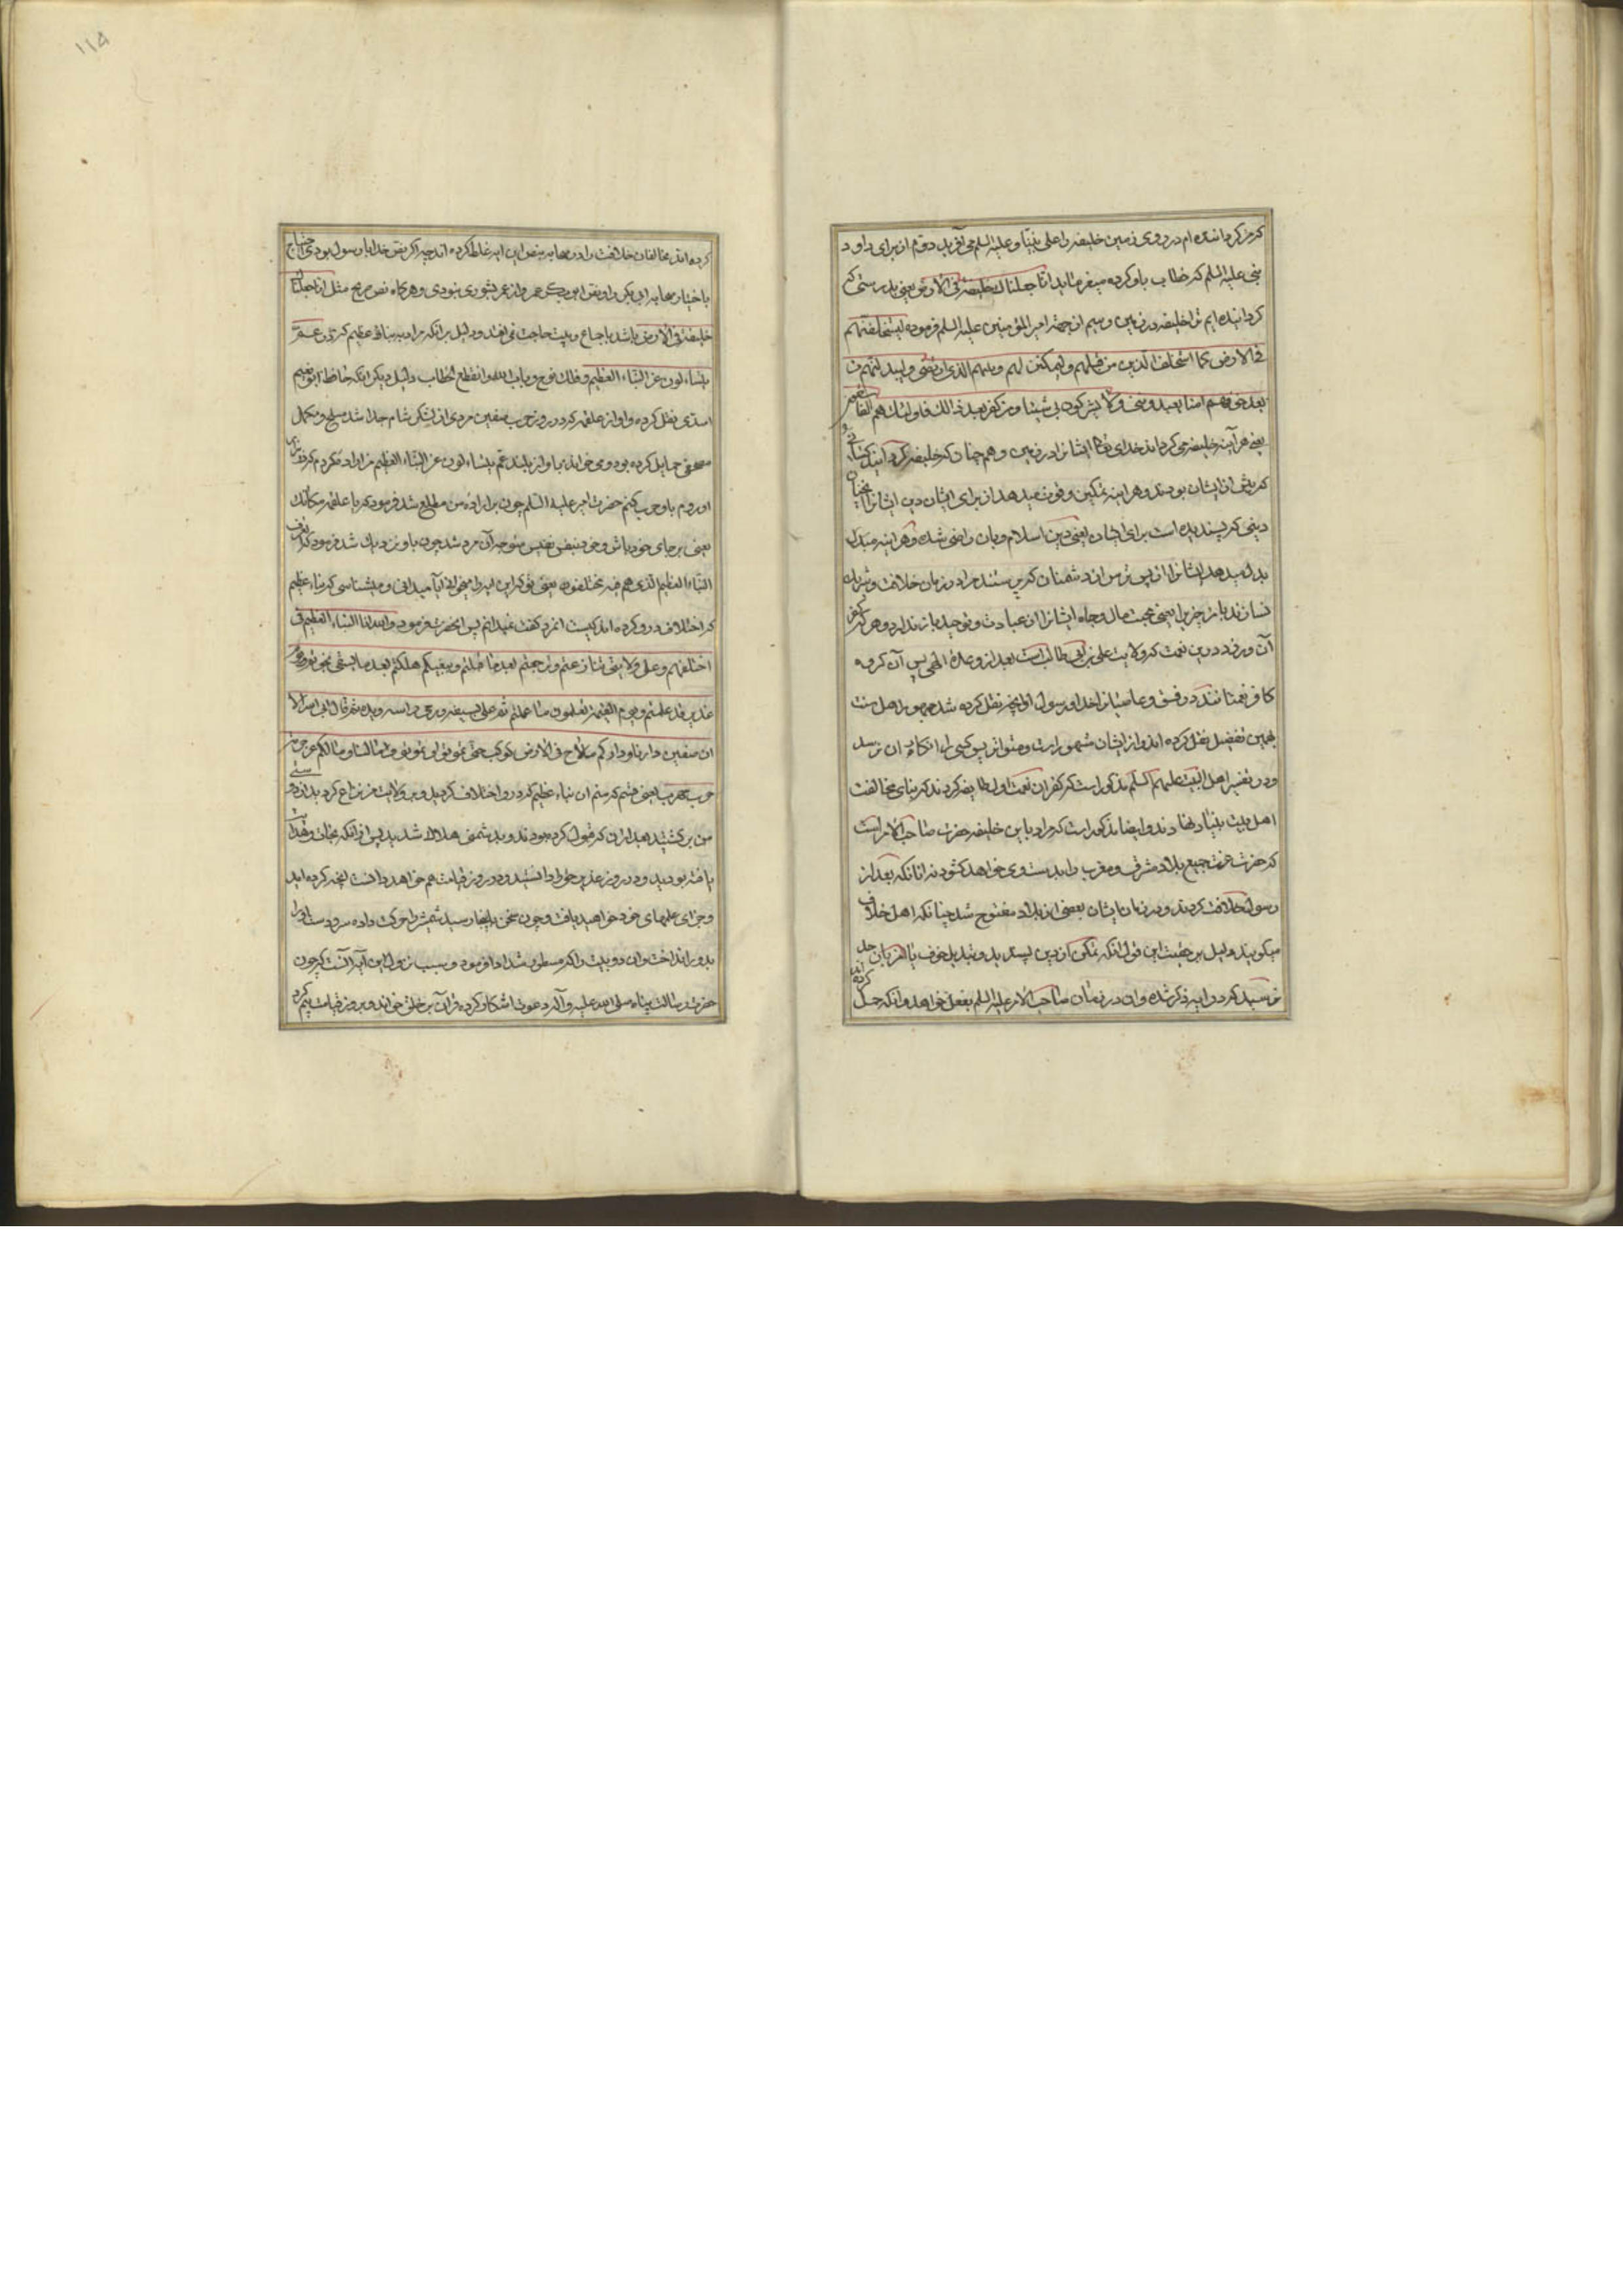 که من گرداننده ام در روی زمین خلیفه را علی نبینا و علیه السلم می آفرید دوم از برای داود
نبی علیه السلم که خطاب باو کرده میفرماید انا جعلناك خلیفة فی الارض یعنی بدرستی که
گردانیده ایم ترا خلیفه در زمین و سیم از جهة امیر المؤمنین علیه السلم فرموده لیستخلفنهم
فی الارض کما استخلف الذین من قبلهم ولیمکنن لهم دینهم الذی ارتضی ولیبدلنهم من
بعد خوفهم امنا یعبدوننی ولا یشرکون بی شیئا ومن کفر بعد ذالك فاولئك هم الفاسقون
یعنی هر آینه خلیفه می گرداند خدای تعالی ایشانرا در زمین و هم چنان که خلیفه گردانید کسانی را
که پیش از ایشان بودند و هر اینه تمکین و قوت میدهد از برای ایشان دین ایشانرا
دینی که پسندیده است برای ایشان یعنی دین اسلام و بان راضی شده و هر اینه مبدل
بدل میدهد ایشانرا از پس ترس از دشمنان که پرستند مرا در زمان خلافت و شریك
نسازند بامن چیزیرا یعنی محبت مال و جاه ایشانرا از عبادت و توحید باز ندارد و هر که کفر
آن ورزد درین نعمت که ولایت علی بن ابی طالب است بعد از وعدۀ الهی پس آن گروه
کافر نعمتانند در فسق و عاصیانند خدا و رسول او انچه نقل کرده شد جمهور اهل سنت
بهمین تفصیل نقل کرده اند و از ایشان مشهور است و متواتر پس کسی را انکار ان نرسد
و در تفسیر اهل البیت علیهم السلم مذکور است که کفران نعمت اول طایفه کردند که بنای مخالفت
اهل بیت بنیاد نهادند و ایضا مذکور است که مراد باین خلیفه حضرت صاحب الامر است
که حضرت عزت جمیع بلاد مشرق و مغرب را بدست وی خواهد کشود نه انانکه بعد از
رسول خلافت کردند و در زمان ایشان بعضی از بلاد مفتوح شد چنانکه اهل خلاف
میگویند و دلیل بر حقیت این قول انکه تمکن از دین پسندیده و تبدیل خوف با
که در ایه ذکر شده و ان در زمان صاحب الامر علیه السلم بفعل خواهد و انکه حمل
کرده اند مخالفان خلافت را در صحابه بنص این ایه غلط کرده اند چه اگر نص خدا یا رسول بودی احتیاج
باختیار صحابه ابی بکر را و نص ابو بکر عمر را و از عمر بشوری نبودی و هر گاه نص صریح مثل انا جعلناك
خلیفة فی الارض باشد باجماع و بیعت حاجت نمی افتد و دلیل بر انکه مراد به نباء عظیم که در عم
یتسائلون عن النباء العظیم و فلك نوح و باب الله وانقطع الخطاب دلیل دیگر اینکه حافظ ابو نعیم
اسدی نقل کرده و او از علقمه که در روز حرب صفین مردی از لشکر شام جدا شد مسلح و مکمل
مصحفی حمایل کرده بود و می خواند باواز بلند عم یتسائلون عن النباء العظیم من اراده کردم که
او روم باو حرب کنم حضرت امیر علیه السلام چون بر اراده من مطلع شد فرمود که یا علقمه مکانك
یعنی بر جای خود باش و خود بنفس نفیس متوجه آن مرد شد چون باو نزدیك شد فرمود که اتعرف
النباء العظیم الذی هم فیه مختلفون یعنی تو که این ایه را میخوانی آیا میدانی و میشناسی که نباء عظیم
که اختلاف درو کرده اند کیست انمرد گفت نمیدانم پس انحضرت فرمود والله انا النباء العظیم فی
اختلفتم وعلی ولایتی تنازعتم ورجعتم بعد ما قبلتم وببغیکم هلکتم بعد ما بسیفی نجوتم ویوم
غدیر قد علمتم ویوم القیمة تعلمون ما عملتم ثم علی بسیفه ورمی راسه ویده ثم قال ابی الله الا
ان صفین دارنا وداركم ما لاح فی الارض کوکب حتی تموتوا او نموت وما لنا ومالکم عن حومة
حرب مهرب یعنی قسم که منم ان نباء عظیم که درو اختلاف کردید و بر ولایت من نزاع کردید و از دوستی
من بر گشتید بعد ازان که قبول کرده بودند و بدشمنی هلاك شدید پس از انکه نجات
یافته بودید و در روز غدیر خود دانستید و در روز قیامت هم خواهد دانست انچه کرده اید
و جزای عملهای خود خواهید یافت و چون سخن باینجا رسید شمشیر را حرکت داده سر و دست او را
بدور انداخت وان دو بیت را که مسطور شد ادا فرمود و سبب نزول این آیه آنست که چون
حضرت رسالت پناه صلی الله علیه وآله دعوت اشکار کرده قرآن بر خلق خواند و بروز قیامت بیم کرد
۱۱۵